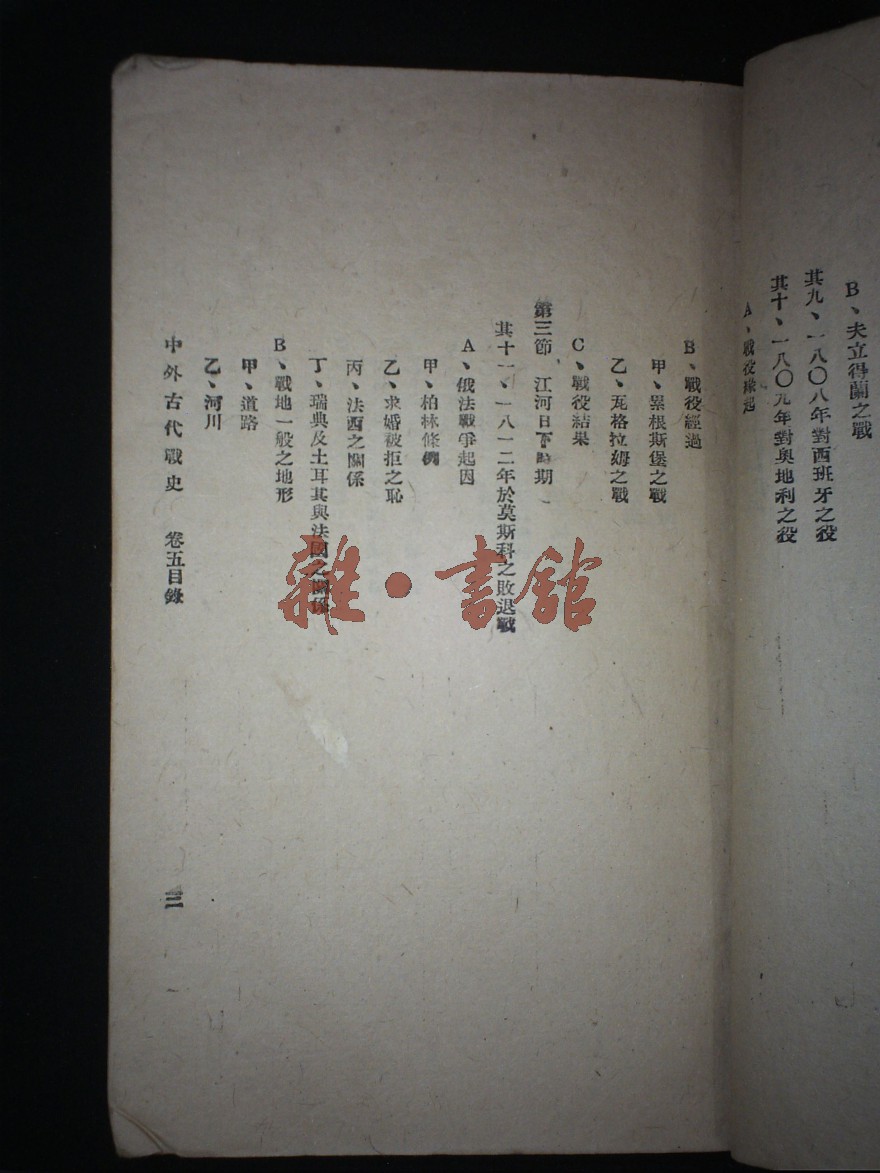 B、夫立得蘭之戰
其九、一八〇八年對西班牙之役
其十、一八〇九年對奧地利之役
A、戰役緣起
B、戰役經過
甲、累根斯堡之戰
乙、瓦格拉姆之戰
C、戰役結果
第三節 江河日下時期
其十一、一八一二年於莫斯科之敗退戰
A、俄法戰爭起因
甲、柏林條例
乙、求婚被拒之恥
丙、法西之關係
丁、瑞典及土耳其與法國之關係
B、戰地一般之地形
甲、道路
乙、河川
中外古代戰史 卷五目錄
三
雜·書館